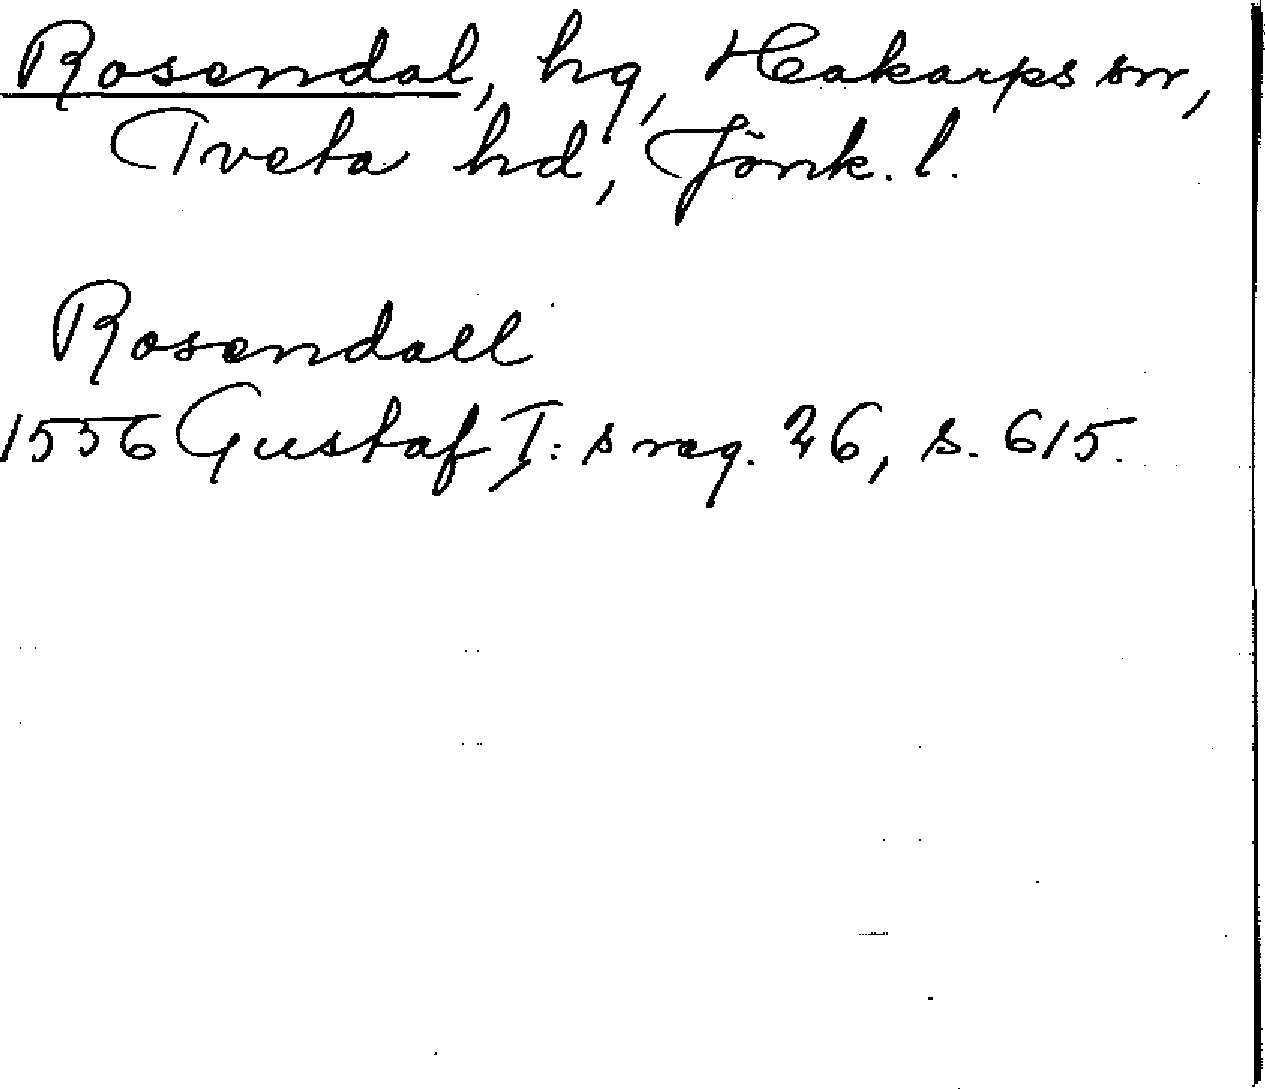 Rosendal, hg, Hakarps sn,
Tveta hd, Jönk. l.
Rosendall
1556 Gustaf I:s reg. 26, s. 615.